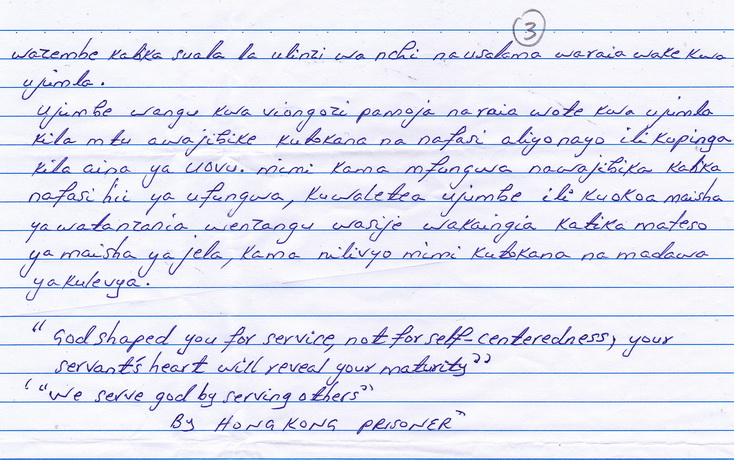 3
wazembe katika suala la ulinzi wa nchi na usalama waraia wake kwa
ujumla.
ujumbe wangu kwa viongozi pamoja na raia wote kwa ujumla
kila mtu awajibike kutokana na nafasi aliyonayo ili kupinga
kila aina ya uovu. mimi kama mfungwa nawajibika katika
nafasi hii ya ufungwa, kuwaletea ujumbe ili kuokoa maisha
ya watanzania wenzangu wasije wakaingia katika mateso
ya maisha ya jela, kama nilivyo mimi kutokana na madawa
yakulevya.
"God shaped you for service, not for self-centeredness, your
servant's heart will reveal your maturity"
"we serve god by serving others"
By HONG KONG PRISONER"